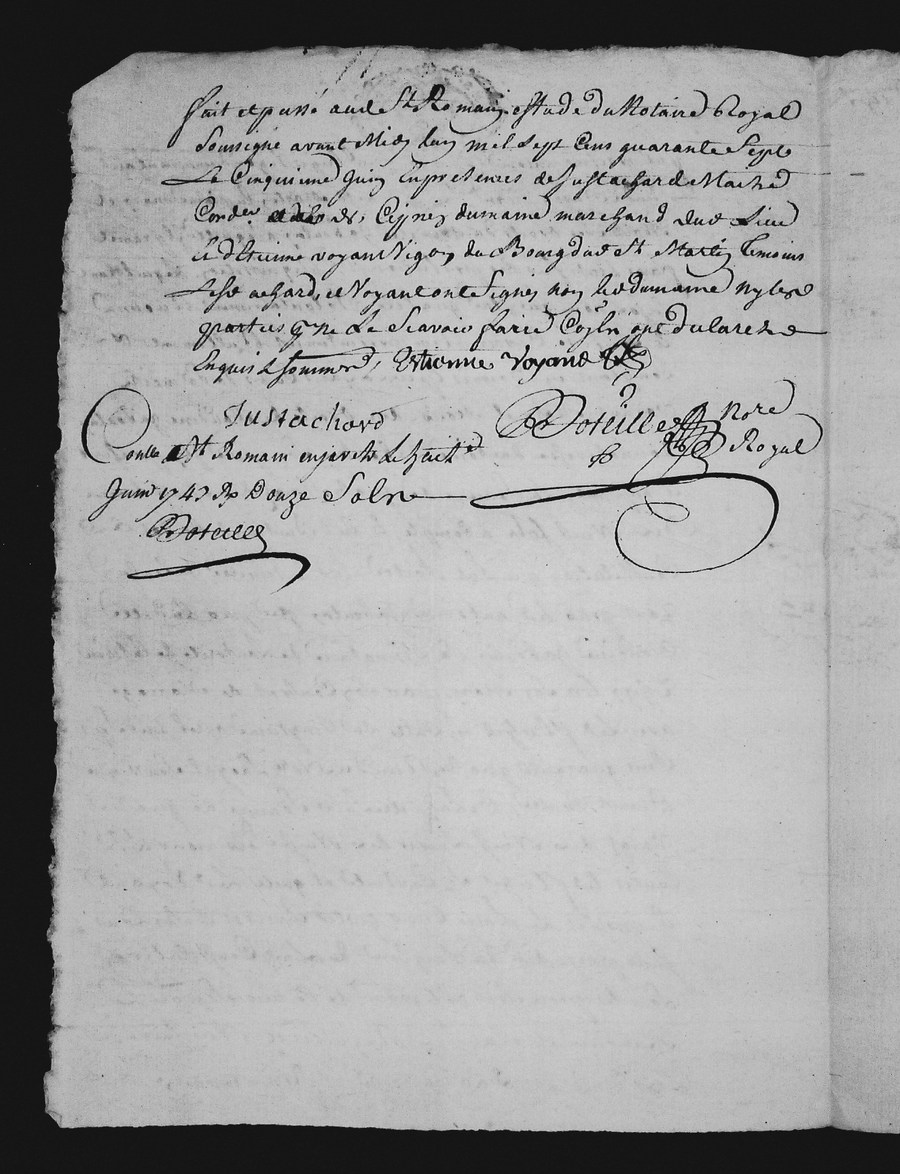 fait et passé aud St Romain estude du Notaire Royal
soussigné avant Midy lan mil sept cens quarante sept
Le Cinquieme Juin En presences de Just achard Maitre
Corder et de dumaine marchand dud Lieu
Et d'Etienne voyant du Bourg dud St Temoins
Led achard, et Voyant ont signés non led dumaine ny les
parties pr ne Le scavoir faire ont declaré de
Enquis & sommés, Estienne Voyand
Just achard
Boteille Nore
Royal
Conllé A St Romain en jarets Le huit
Juin 1747 Rx Douze Sols
Boteille